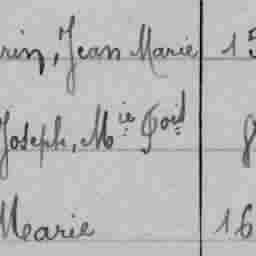 rin, Jean Marie 15
Joseph, Mie 8
Mearie 16